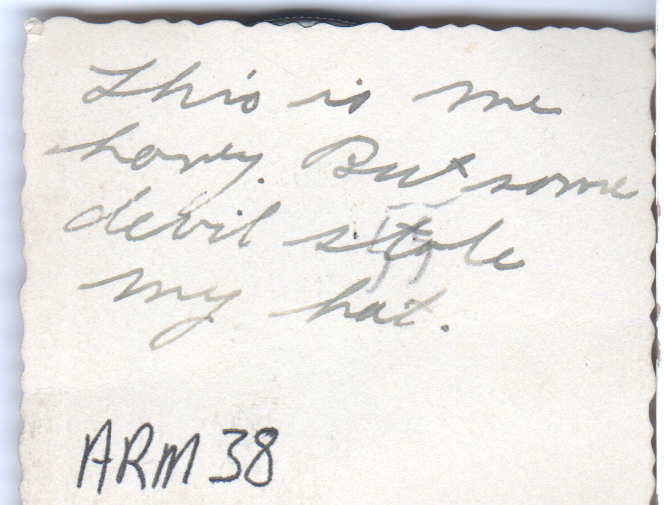 This is me
honey. But some
devil stole
my hat.
ARM 38